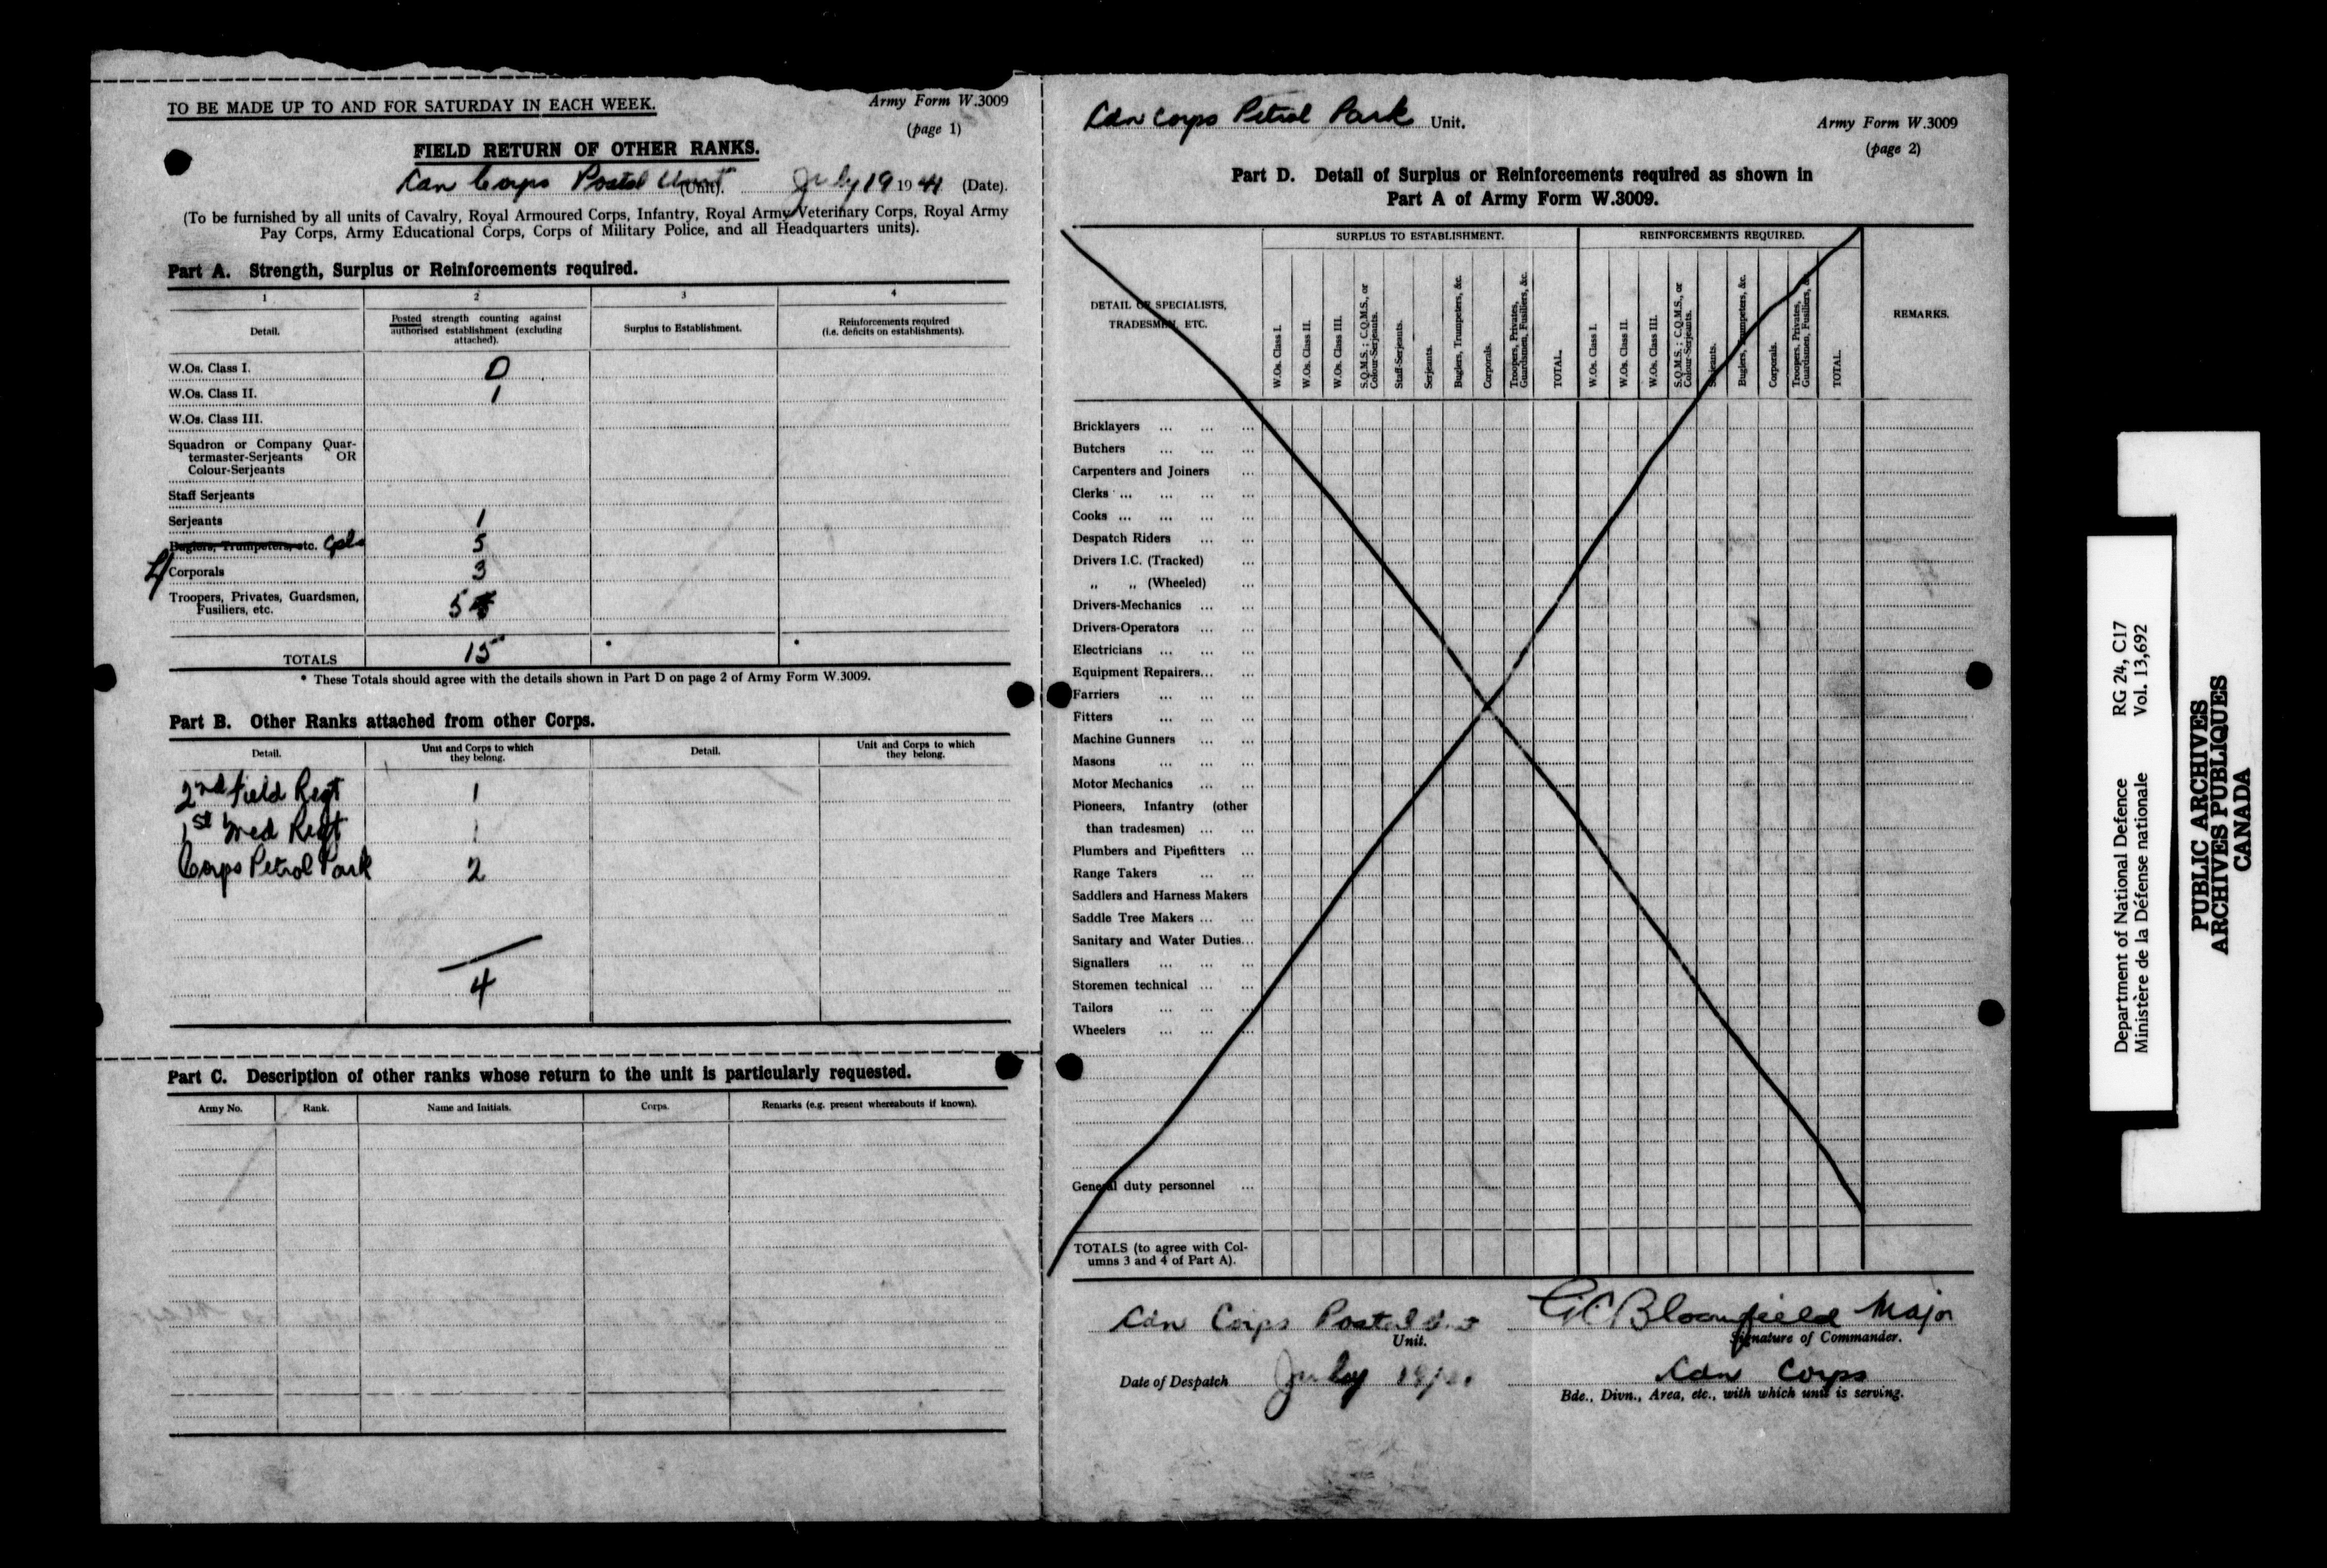 TO BE MADE UP TO AND FOR SATURDAY IN EACH WEEK.
Army Form W.3009
(page 1)
FIELD RETURN OF OTHER RANKS.
Can Corps Postal Unit (Unit). July 19 1941 (Date).
(To be furnished by all units of Cavalry, Royal Armoured Corps, Infantry, Royal Army Veterinary Corps, Royal Army
Pay Corps, Army Educational Corps, Corps of Military Police, and all Headquarters units).
Part A. Strength, Surplus or Reinforcements required.
1 2 3 4
Detail.
Posted strength counting against
authorised establishment (excluding
attached).
Surplus to Establishment.
Reinforcements required
(i.e. deficits on establishments).
W.Os. Class I. 0
W.Os. Class II. 1
W.Os. Class III.
Squadron or Company Quar-
termaster-Serjeants OR
Colour-Serjeants
Staff Serjeants
Serjeants 1
Buglers, Trumpeters, etc. Cpls 5
L/Corporals 3
Troopers, Privates, Guardsmen,
Fusiliers, etc. 5
TOTALS 15 * *
* These Totals should agree with the details shown in Part D on page 2 of Army Form W.3009.
Part B. Other Ranks attached from other Corps.
Detail.
Unit and Corps to which
they belong.
Detail.
Unit and Corps to which
they belong.
2nd Field Regt 1
1st Med Regt 1
Corps Petrol Park 2
4
Part C. Description of other ranks whose return to the unit is particularly requested.
Army No. Rank. Name and Initials. Corps. Remarks (e.g. present whereabouts if known).
Cdn Corps Petrol Park Unit.
Army Form W.3009
(page 2)
Part D. Detail of Surplus or Reinforcements required as shown in
Part A of Army Form W.3009.
SURPLUS TO ESTABLISHMENT. REINFORCEMENTS REQUIRED.
DETAIL OF SPECIALISTS,
TRADESMEN, ETC.
W.Os. Class I.
W.Os. Class II.
W.Os. Class III.
S.Q.M.S.; C.Q.M.S., or
Colour-Serjeants.
Staff-Serjeants.
Serjeants.
Buglers, Trumpeters, &c.
Corporals.
Troopers, Privates,
Guardsmen, Fusiliers, &c.
TOTAL.
W.Os. Class I.
W.Os. Class II.
W.Os. Class III.
S.Q.M.S.; C.Q.M.S., or
Colour-Serjeants.
Serjeants.
Buglers, Trumpeters, &c.
Corporals.
Troopers, Privates,
Guardsmen, Fusiliers, &c.
TOTAL.
REMARKS.
Bricklayers ... ... ...
Butchers ... ... ...
Carpenters and Joiners ...
Clerks ... ... ... ...
Cooks ... ... ... ...
Despatch Riders ... ...
Drivers I.C. (Tracked) ...
„ „ (Wheeled) ...
Drivers-Mechanics ... ...
Drivers-Operators ... ...
Electricians ... ... ...
Equipment Repairers... ...
Farriers ... ... ...
Fitters ... ... ...
Machine Gunners ... ...
Masons ... ... ...
Motor Mechanics ... ...
Pioneers, Infantry (other
than tradesmen) ... ...
Plumbers and Pipefitters ...
Range Takers ... ...
Saddlers and Harness Makers
Saddle Tree Makers ... ...
Sanitary and Water Duties...
Signallers ... ... ...
Storemen technical ... ...
Tailors ... ... ...
Wheelers ... ... ...
General duty personnel ...
TOTALS (to agree with Col-
umns 3 and 4 of Part A).
Cdn Corps Postal Unit
Unit.
G C Bloomfield Major
Signature of Commander.
Date of Despatch July 19/41
Cdn Corps
Bde., Divn., Area, etc., with which unit is serving.
Department of National Defence RG 24, C17
Ministère de la Défense nationale Vol. 13,692
PUBLIC ARCHIVES
ARCHIVES PUBLIQUES
CANADA